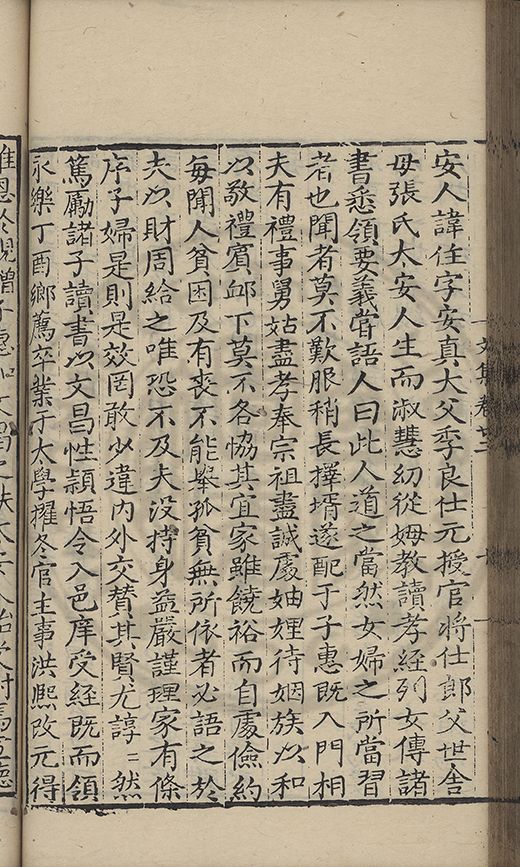 文集卷廿二
安人諱住字安真大父季良仕元授官將仕郎父世舍
母張氏太安人生而淑慧幼從姆教讀孝經列女傳諸
書悉領要義甞語人曰此人道之當然女婦之所當習
者也聞者莫不歎服稍長擇壻遂配于子惠既入門相
夫有禮事舅姑盡孝奉宗祖盡誠處妯娌待姻族以和
以敬禮賓䘏下莫不各協其宜家雖饒裕而自處儉約
每聞人貧困及有喪不能舉孤貧無所依者必語之於
夫以財周給之唯恐不及夫没持身益嚴謹理家有條
序子婦是則是效罔敢少違内外交賛其賢尤諄〻然
篤勵諸子讀書以文昌性頴悟令入邑庠受經既而領
永樂丁酉鄉薦卒業于太學擢冬官主事洪熙改元得